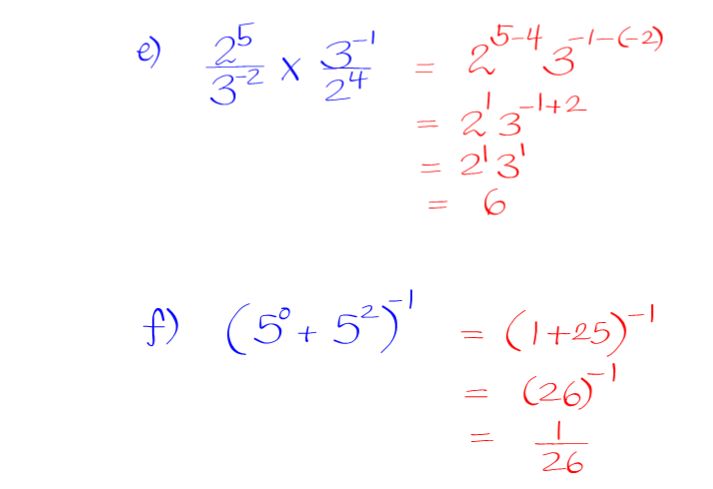 e) 2^5/3^-2 x 3^-1/2^4 = 2^5-4 3^-1-(-2)
= 2^1 3^-1+2
= 2^1 3^1
= 6
f) (5^0 + 5^2)^-1 = (1+25)^-1
= (26)^-1
= 1/26